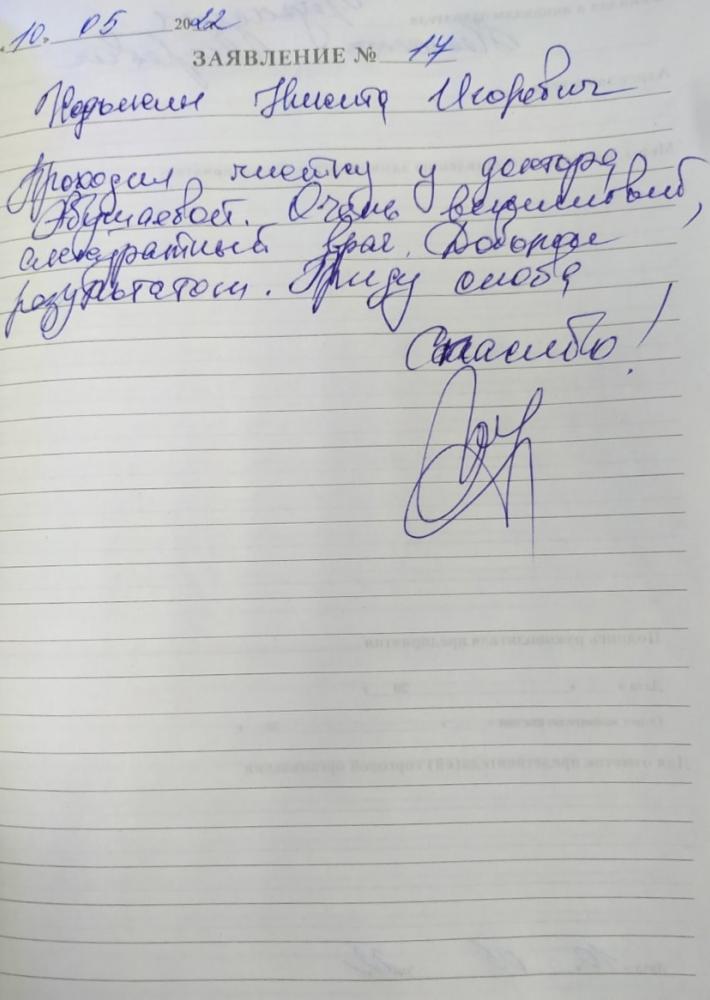 "10" 05 2022
ЗАЯВЛЕНИЕ № 17
Никита Игоревич
Проходил чистку у доктора
Очень вежливый,
аккуратный врач. Доволен
результатом. Приду снова
Спасибо!